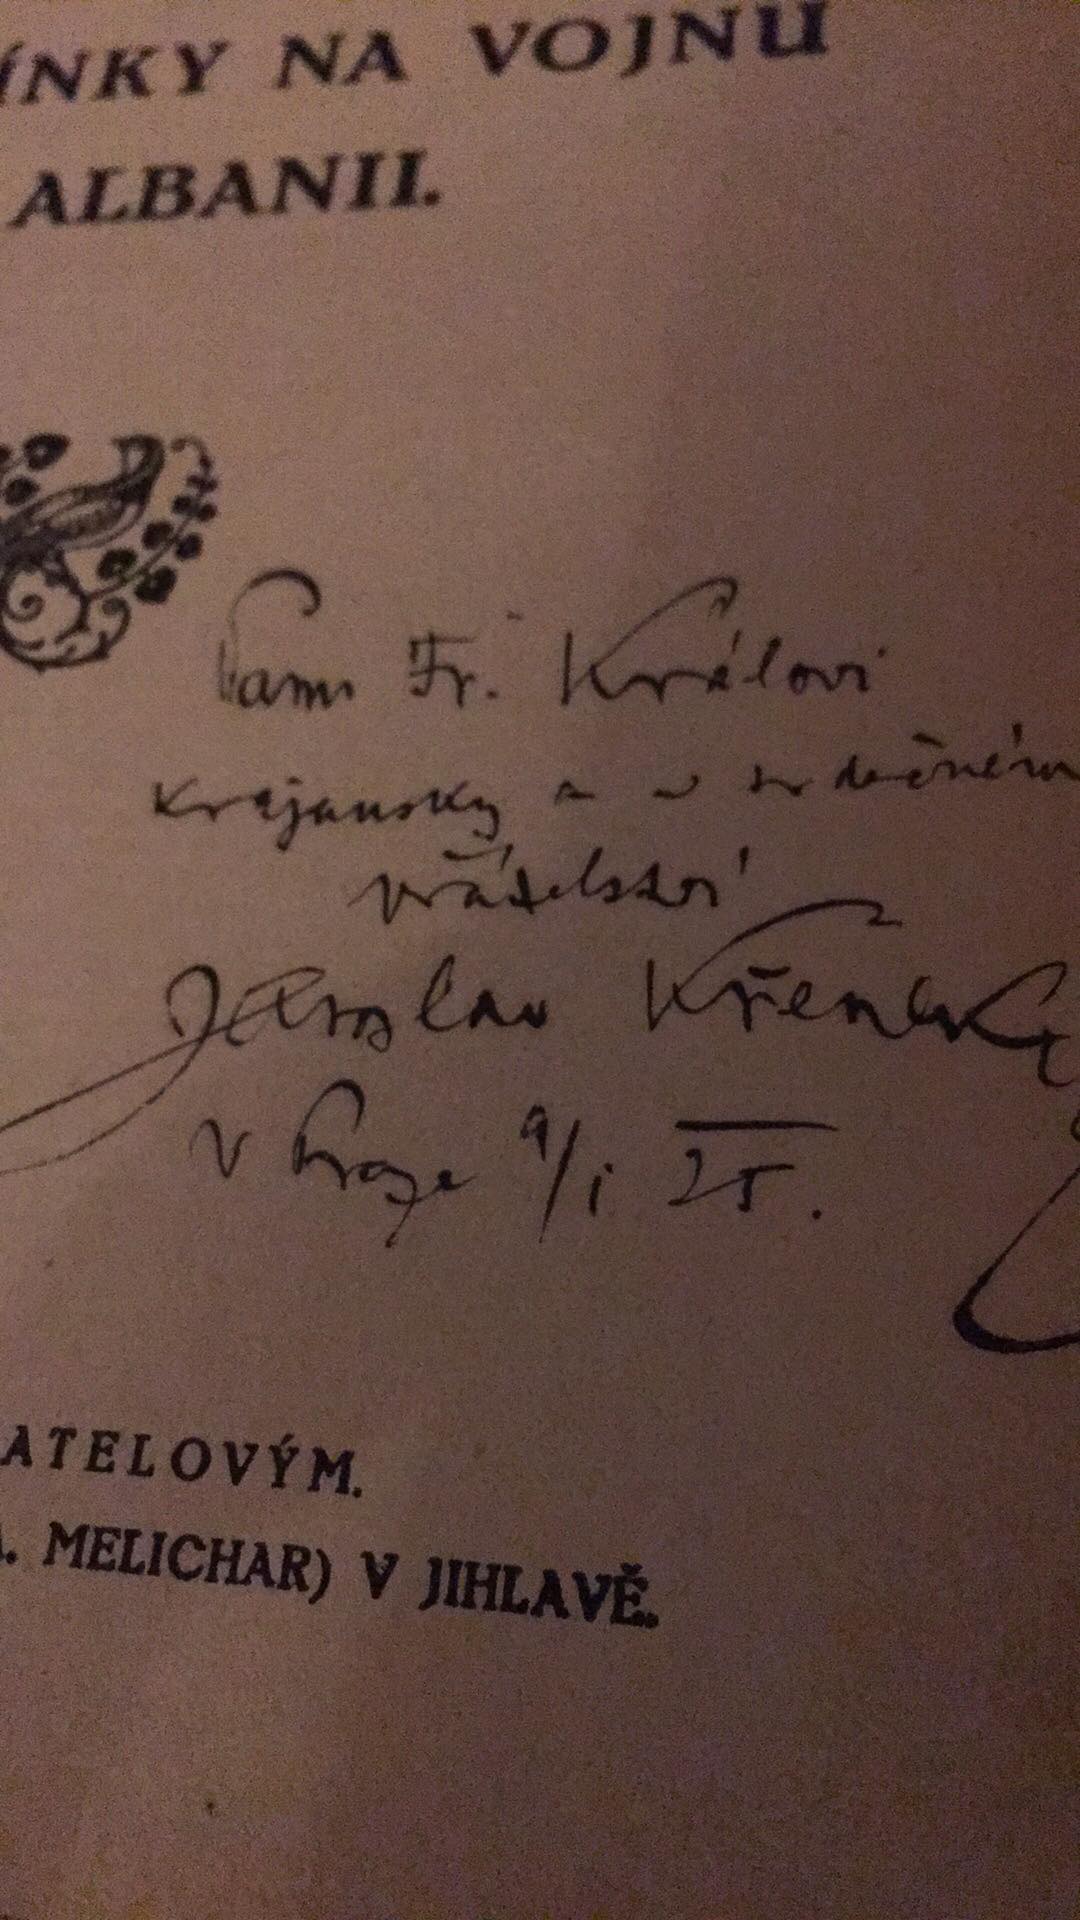 ÍNKY NA VOJNU
ALBANII.
Panu Fr. Královi
krajansky a v srdečném
přátelství
Jaroslav
V Praze 9/I 25.
ATELOVÝM.
A. MELICHAR) V JIHLAVĚ.